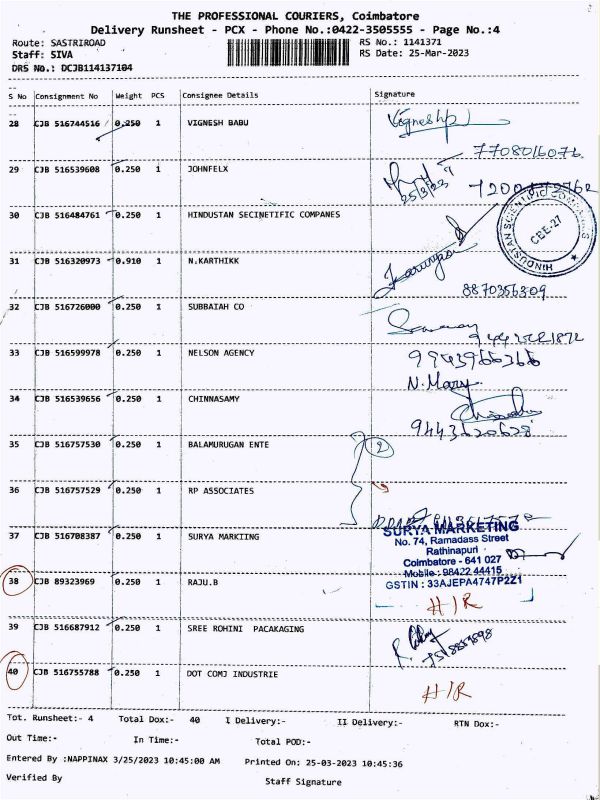 THE PROFESSIONAL COURIERS, Coimbatore
Delivery Runsheet - PCX - Phone No.:0422-3505555 - Page No.:4
Route: SASTRIROAD RS No.: 1141371
Staff: SIVA RS Date: 25-Mar-2023
DRS No.: DCJB114137104
S No Consignment No Weight PCS Consignee Details Signature
28 CJB 516744516 0.250 1 VIGNESH BABU Vigneshp
7708016076
29 CJB 516539608 0.250 1 JOHNFELX
25/3/23
30 CJB 516484761 0.250 1 HINDUSTAN SECINETIFIC COMPANES
HINDUSTAN SCIENTIFIC COMPANIES
CBE-27
31 CJB 516320973 0.910 1 N.KARTHIKK
8870356309
32 CJB 516726000 0.250 1 SUBBAIAH CO
33 CJB 516599978 0.250 1 NELSON AGENCY 9943966366
N.Mary
34 CJB 516539656 0.250 1 CHINNASAMY
9443620628
35 CJB 516757530 0.250 1 BALAMURUGAN ENTE 2
36 CJB 516757529 0.250 1 RP ASSOCIATES
37 CJB 516708387 0.250 1 SURYA MARKIING
SURYA MARKETING
No. 74, Ramadass Street
Rathinapuri
Coimbatore - 641 027
Mobile : 98422 44415
GSTIN : 33AJEPA4747P2Z1
38 CJB 89323969 0.250 1 RAJU.B H/R
39 CJB 516687912 0.250 1 SREE ROHINI PACAKAGING
40 CJB 516755788 0.250 1 DOT COMJ INDUSTRIE H/R
Tot. Runsheet:- 4 Total Dox:- 40 I Delivery:- II Delivery:- RTN Dox:-
Out Time:- In Time:- Total POD:-
Entered By :NAPPINAX 3/25/2023 10:45:00 AM Printed On: 25-03-2023 10:45:36
Verified By Staff Signature